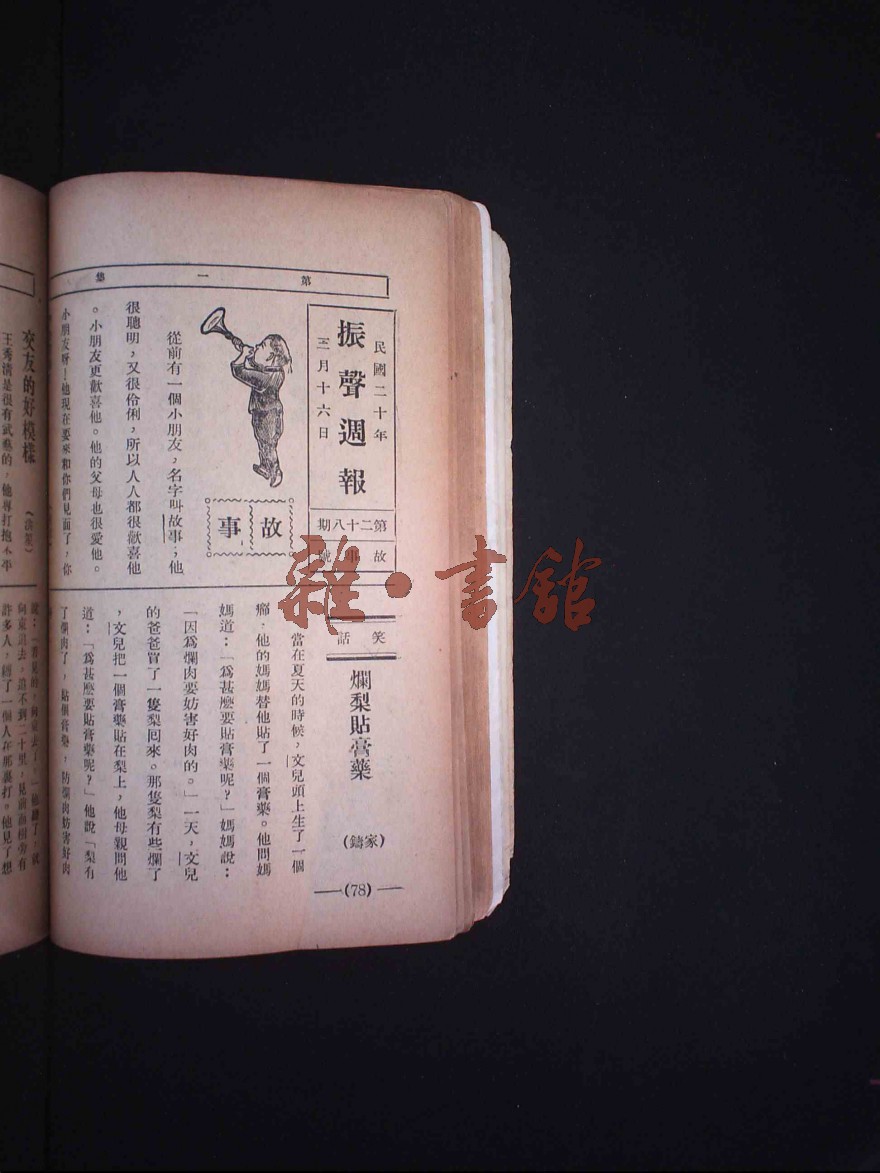 第一集
民國二十年
振聲週報
三月十六日
第二十八期
故事號
故事
從前有一個小朋友，名字叫故事；他
很聰明，又很伶俐，所以人人都很歡喜他
。小朋友更歡喜他。他的父母也很愛他。
小朋友呀！他現在要來和你們見面了，你
笑話
爛梨貼膏藥
（家鑄）
當在夏天的時候，文兒頭上生了一個
癤，他的媽媽替他貼了一個膏藥。他問媽
媽道：「為甚麽要貼膏藥呢？」媽媽說：
「因為爛肉要妨害好肉的。」一天，文兒
的爸爸買了一隻梨囘來。那隻梨有些爛了
，文兒把一個膏藥貼在梨上，他母親問他
道：「為甚麽要貼膏藥呢？」他說「梨有
了爛肉了，貼個膏藥，防爛肉妨害好肉
（78）
交友的好模樣
王秀清是很有武藝的，他專打抱不平
向東追去，追不到二十里，見前面樹旁有
許多人，圍了一個人在那裏打。他見了想
雜·書館